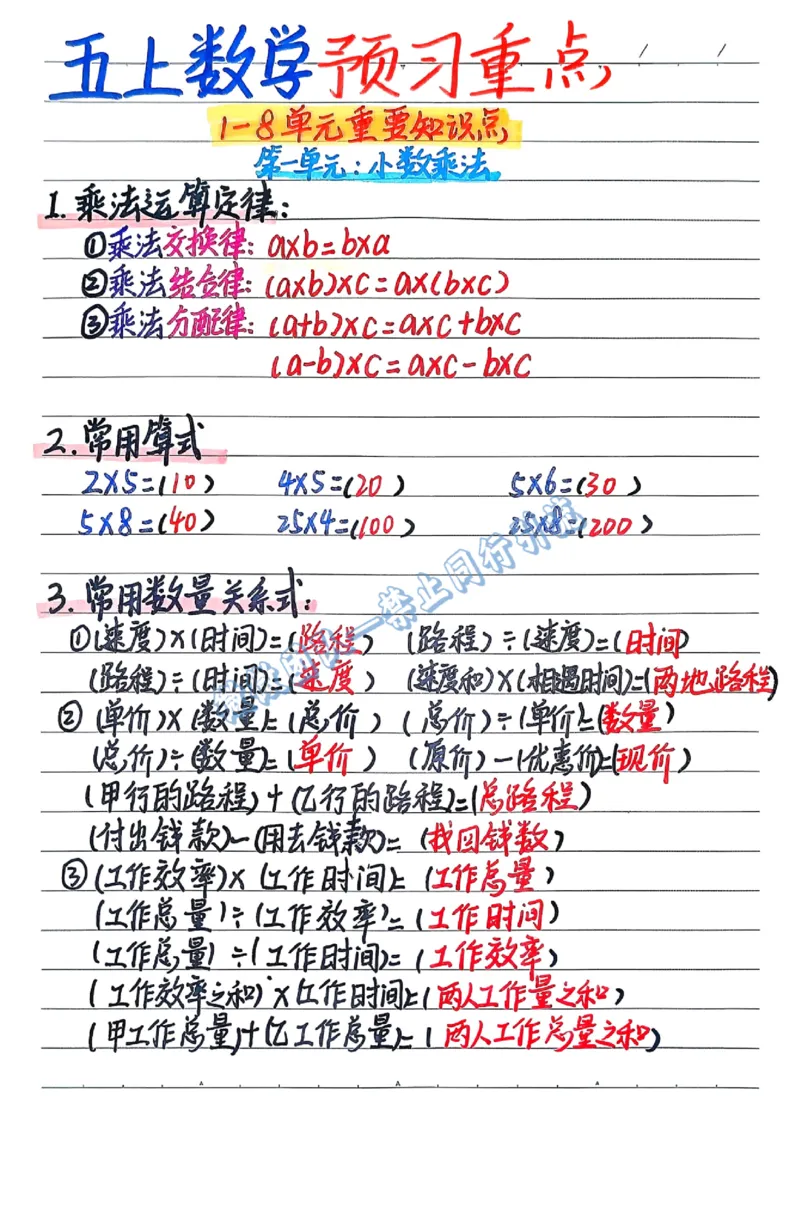 五上数学预习重点
1-8单元重要知识点
第一单元:小数乘法。
1.乘法运算定律:
①乘法交换律:a×b=b×a
②乘法结合律:(a×b)×c=a×(b×c)
③乘法分配律:(a+b)×c=a×c+b×c
(a-b)×c=a×c-b×c
2.常用算式
2×5=(10) 4×5=(20) 5×6=(30)
5×8=(40) 25×4=(100) 25×8=(200)
3.常用数量关系式:
①(速度)×(时间)=(路程) (路程)÷(速度)=(时间)
(路程)÷(时间)=(速度) (速度和)×(相遇时间)=(两地路程)
②(单价)×(数量)=(总价) (总价)÷(单价)=(数量)
(总价)÷(数量)=(单价) (原价)-(优惠价)=(现价)
(甲行的路程)+(乙行的路程)=(总路程)
(付出钱款)-(用去钱款)=(找回钱数)
③(工作效率)×(工作时间)=(工作总量)
(工作总量)÷(工作效率)=(工作时间)
(工作总量)÷(工作时间)=(工作效率)
(工作效率之和)×(工作时间)=(两人工作量之和)
(甲工作总量)+(乙工作总量)=(两人工作总量之和)